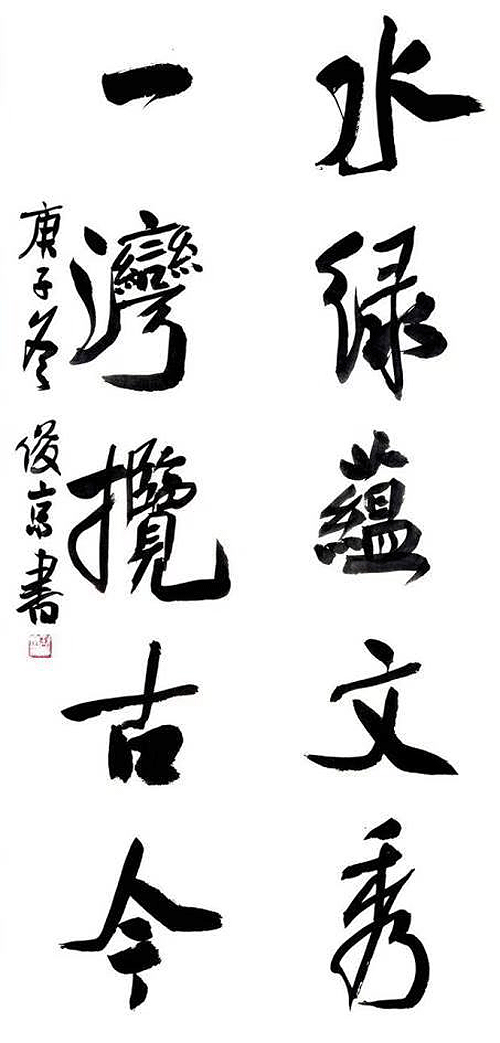 水绿蕴文秀
一灣攬古今
庚子冬 俊京書